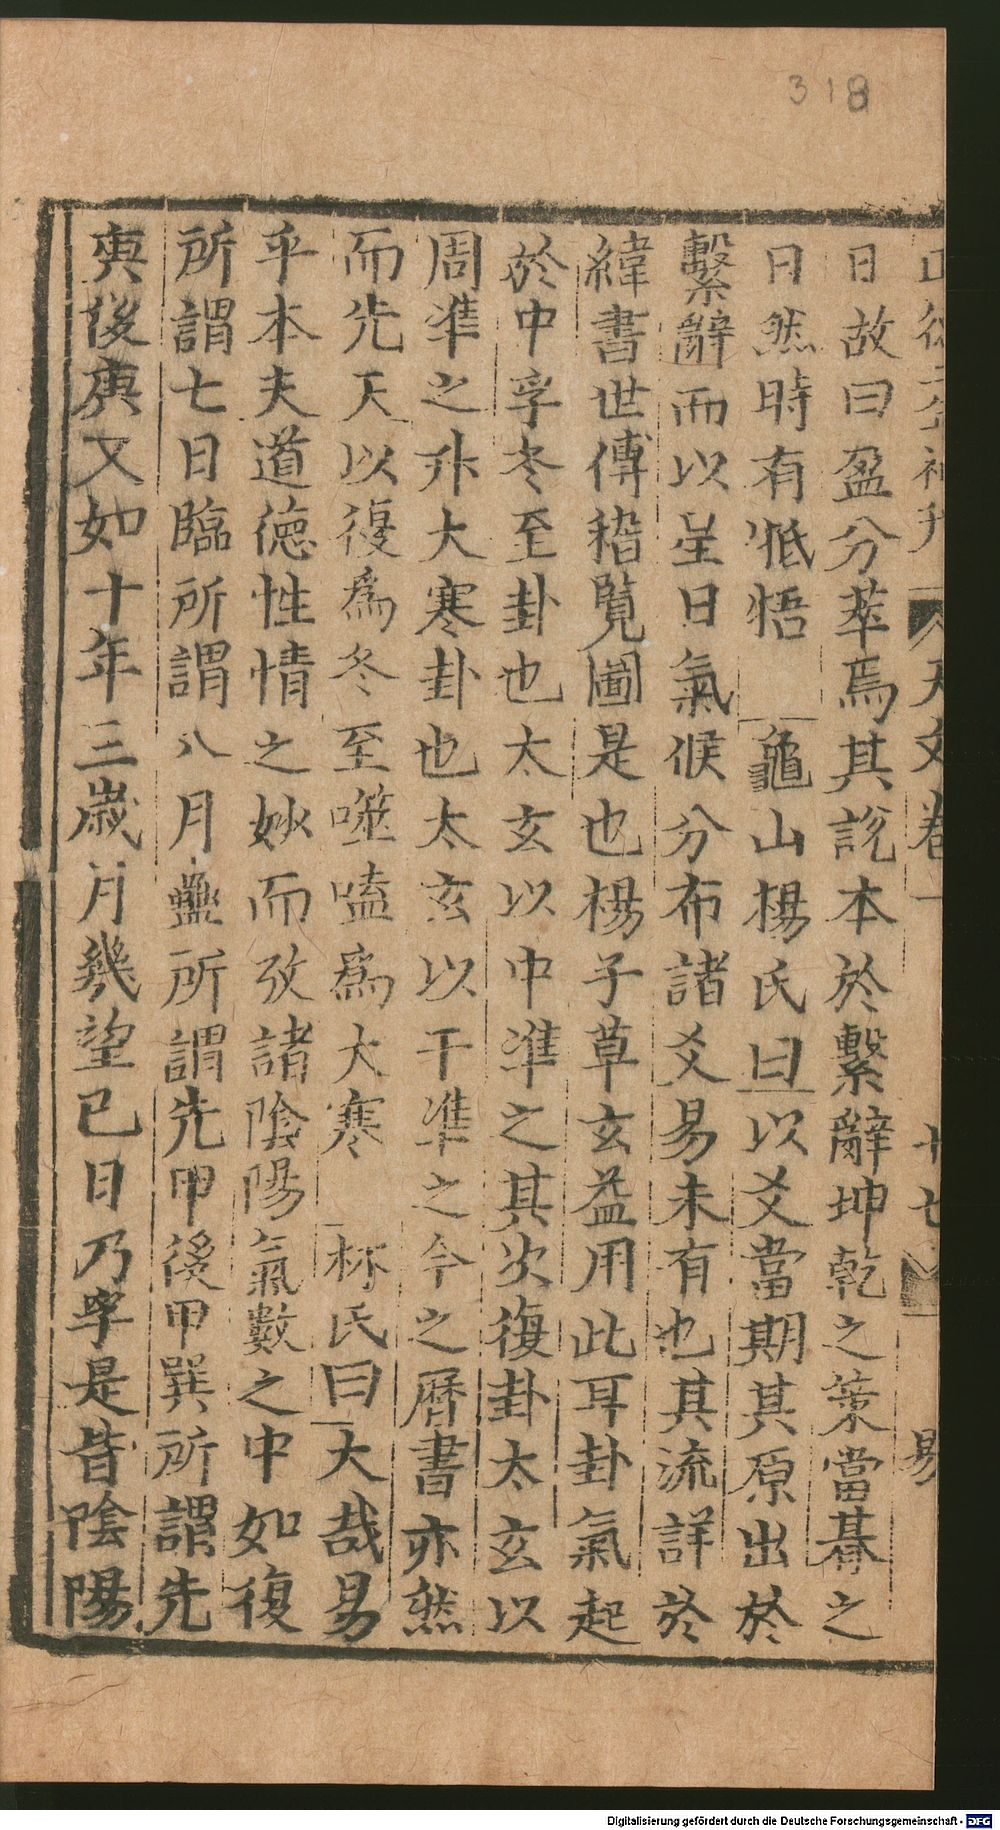 318
日故曰盈分萃焉其説本於繫辭坤乾之策當朞之
日然時有牴牾 龜山楊氏曰以爻當期其原出於
繫辭而以星日氣候分布諸爻易未有也其流詳於
緯書世傳稽覽圖是也楊子草玄益用此耳卦氣起
於中孚冬至卦也太玄以中準之其次復卦太玄以
周準之升大寒卦也太玄以干準之今之曆書亦然
而先天以復爲冬至噬嗑爲大寒 林氏曰大哉易
乎本夫道德性情之妙而攷諸陰陽氣數之中如復
所謂七日臨所謂八月蠱所謂先甲後甲巽所謂先
庚後庚又如十年三歲月幾望已日乃孚是皆陰陽
Digitalisierung gefördert durch die Deutsche Forschungsgemeinschaft - DFG